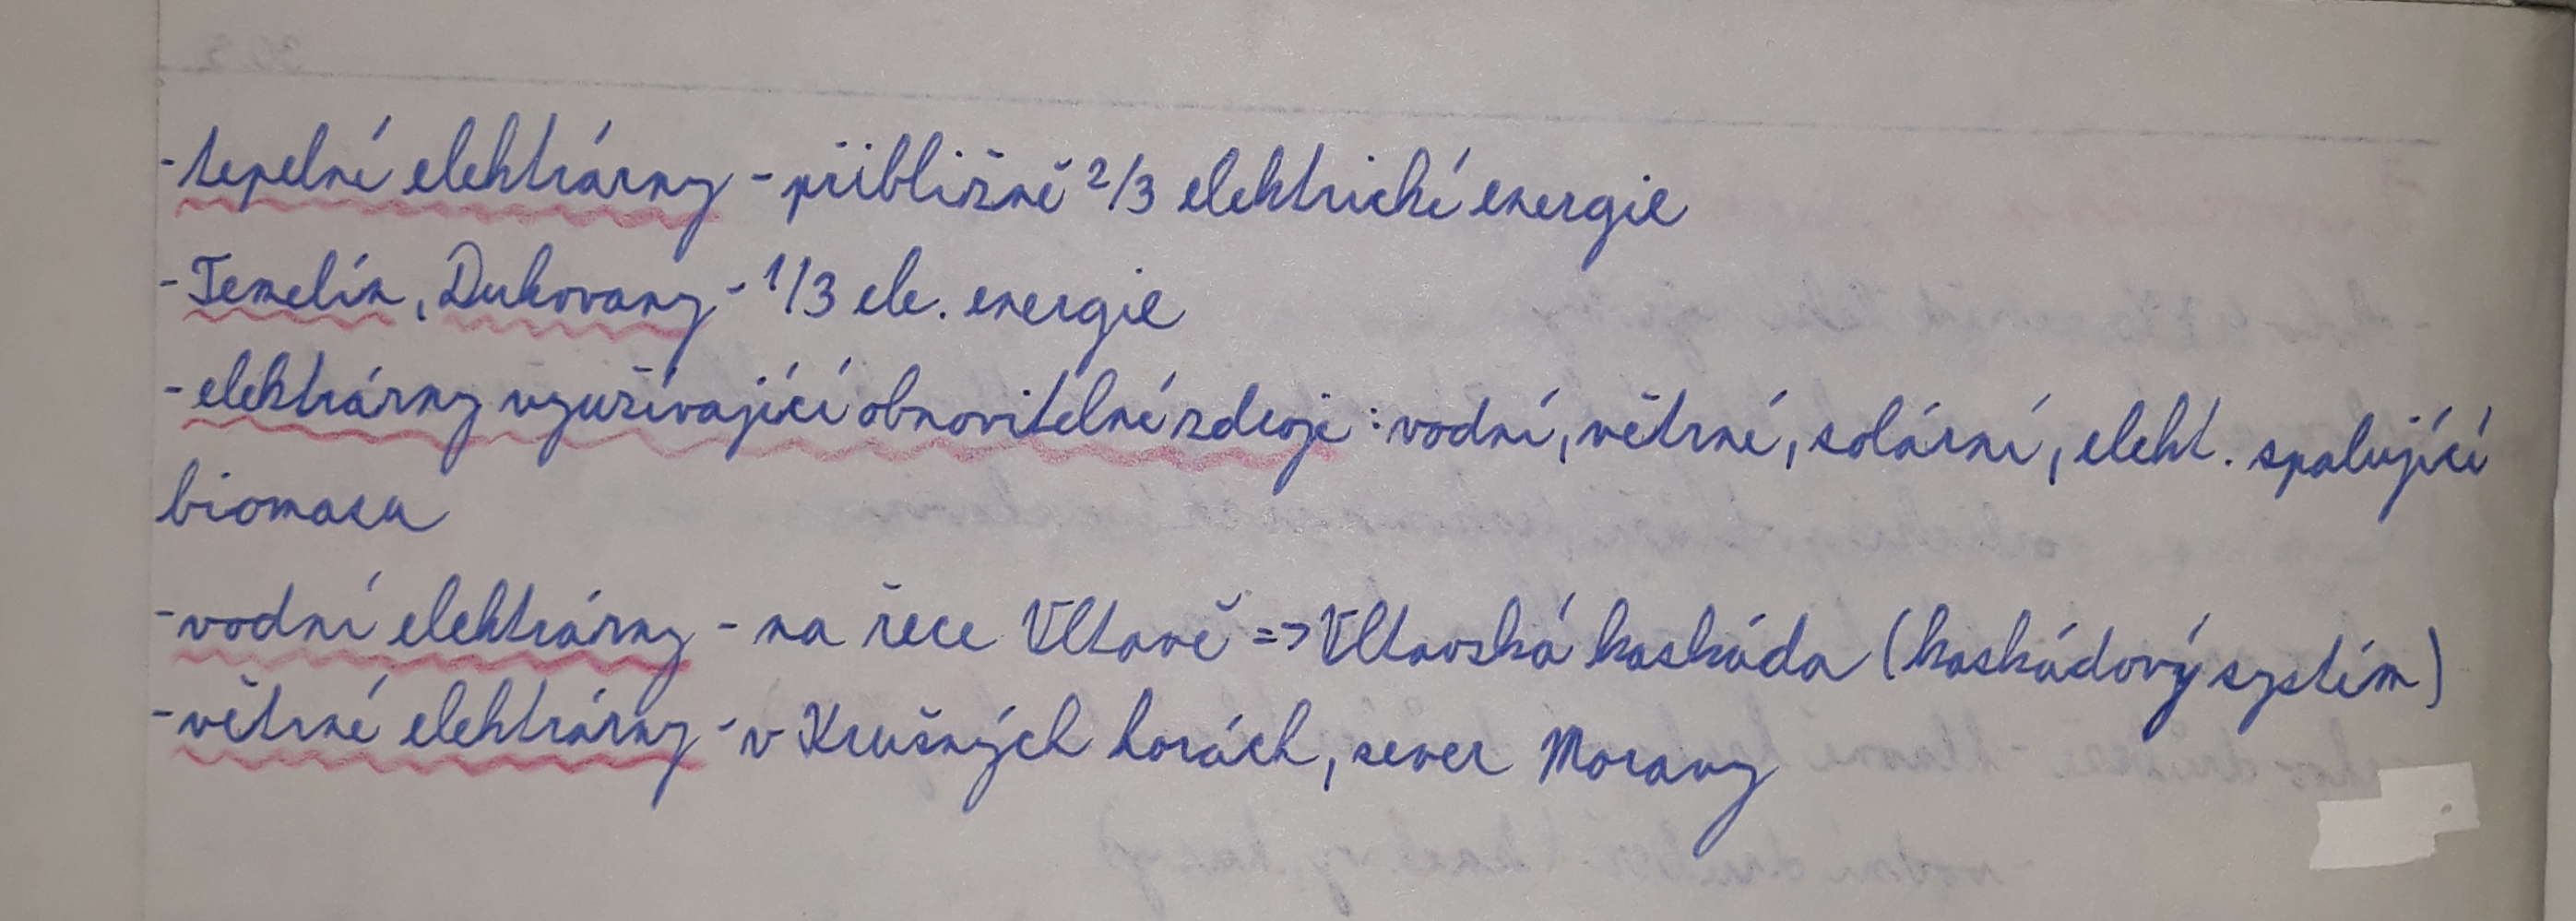 -tepelné elektrárny - přibližně 2/3 elektrické energie
-Temelín, Dukovany - 1/3 ele. energie
-elektrárny využívající obnovitelné zdroje : vodní, větrné, solární, elekt. spalující
biomasu
-vodní elektrárny - na řece Vltavě => Vltavská kaskáda (kaskádový systém)
-větrné elektrárny - v Krušných horách, sever Moravy